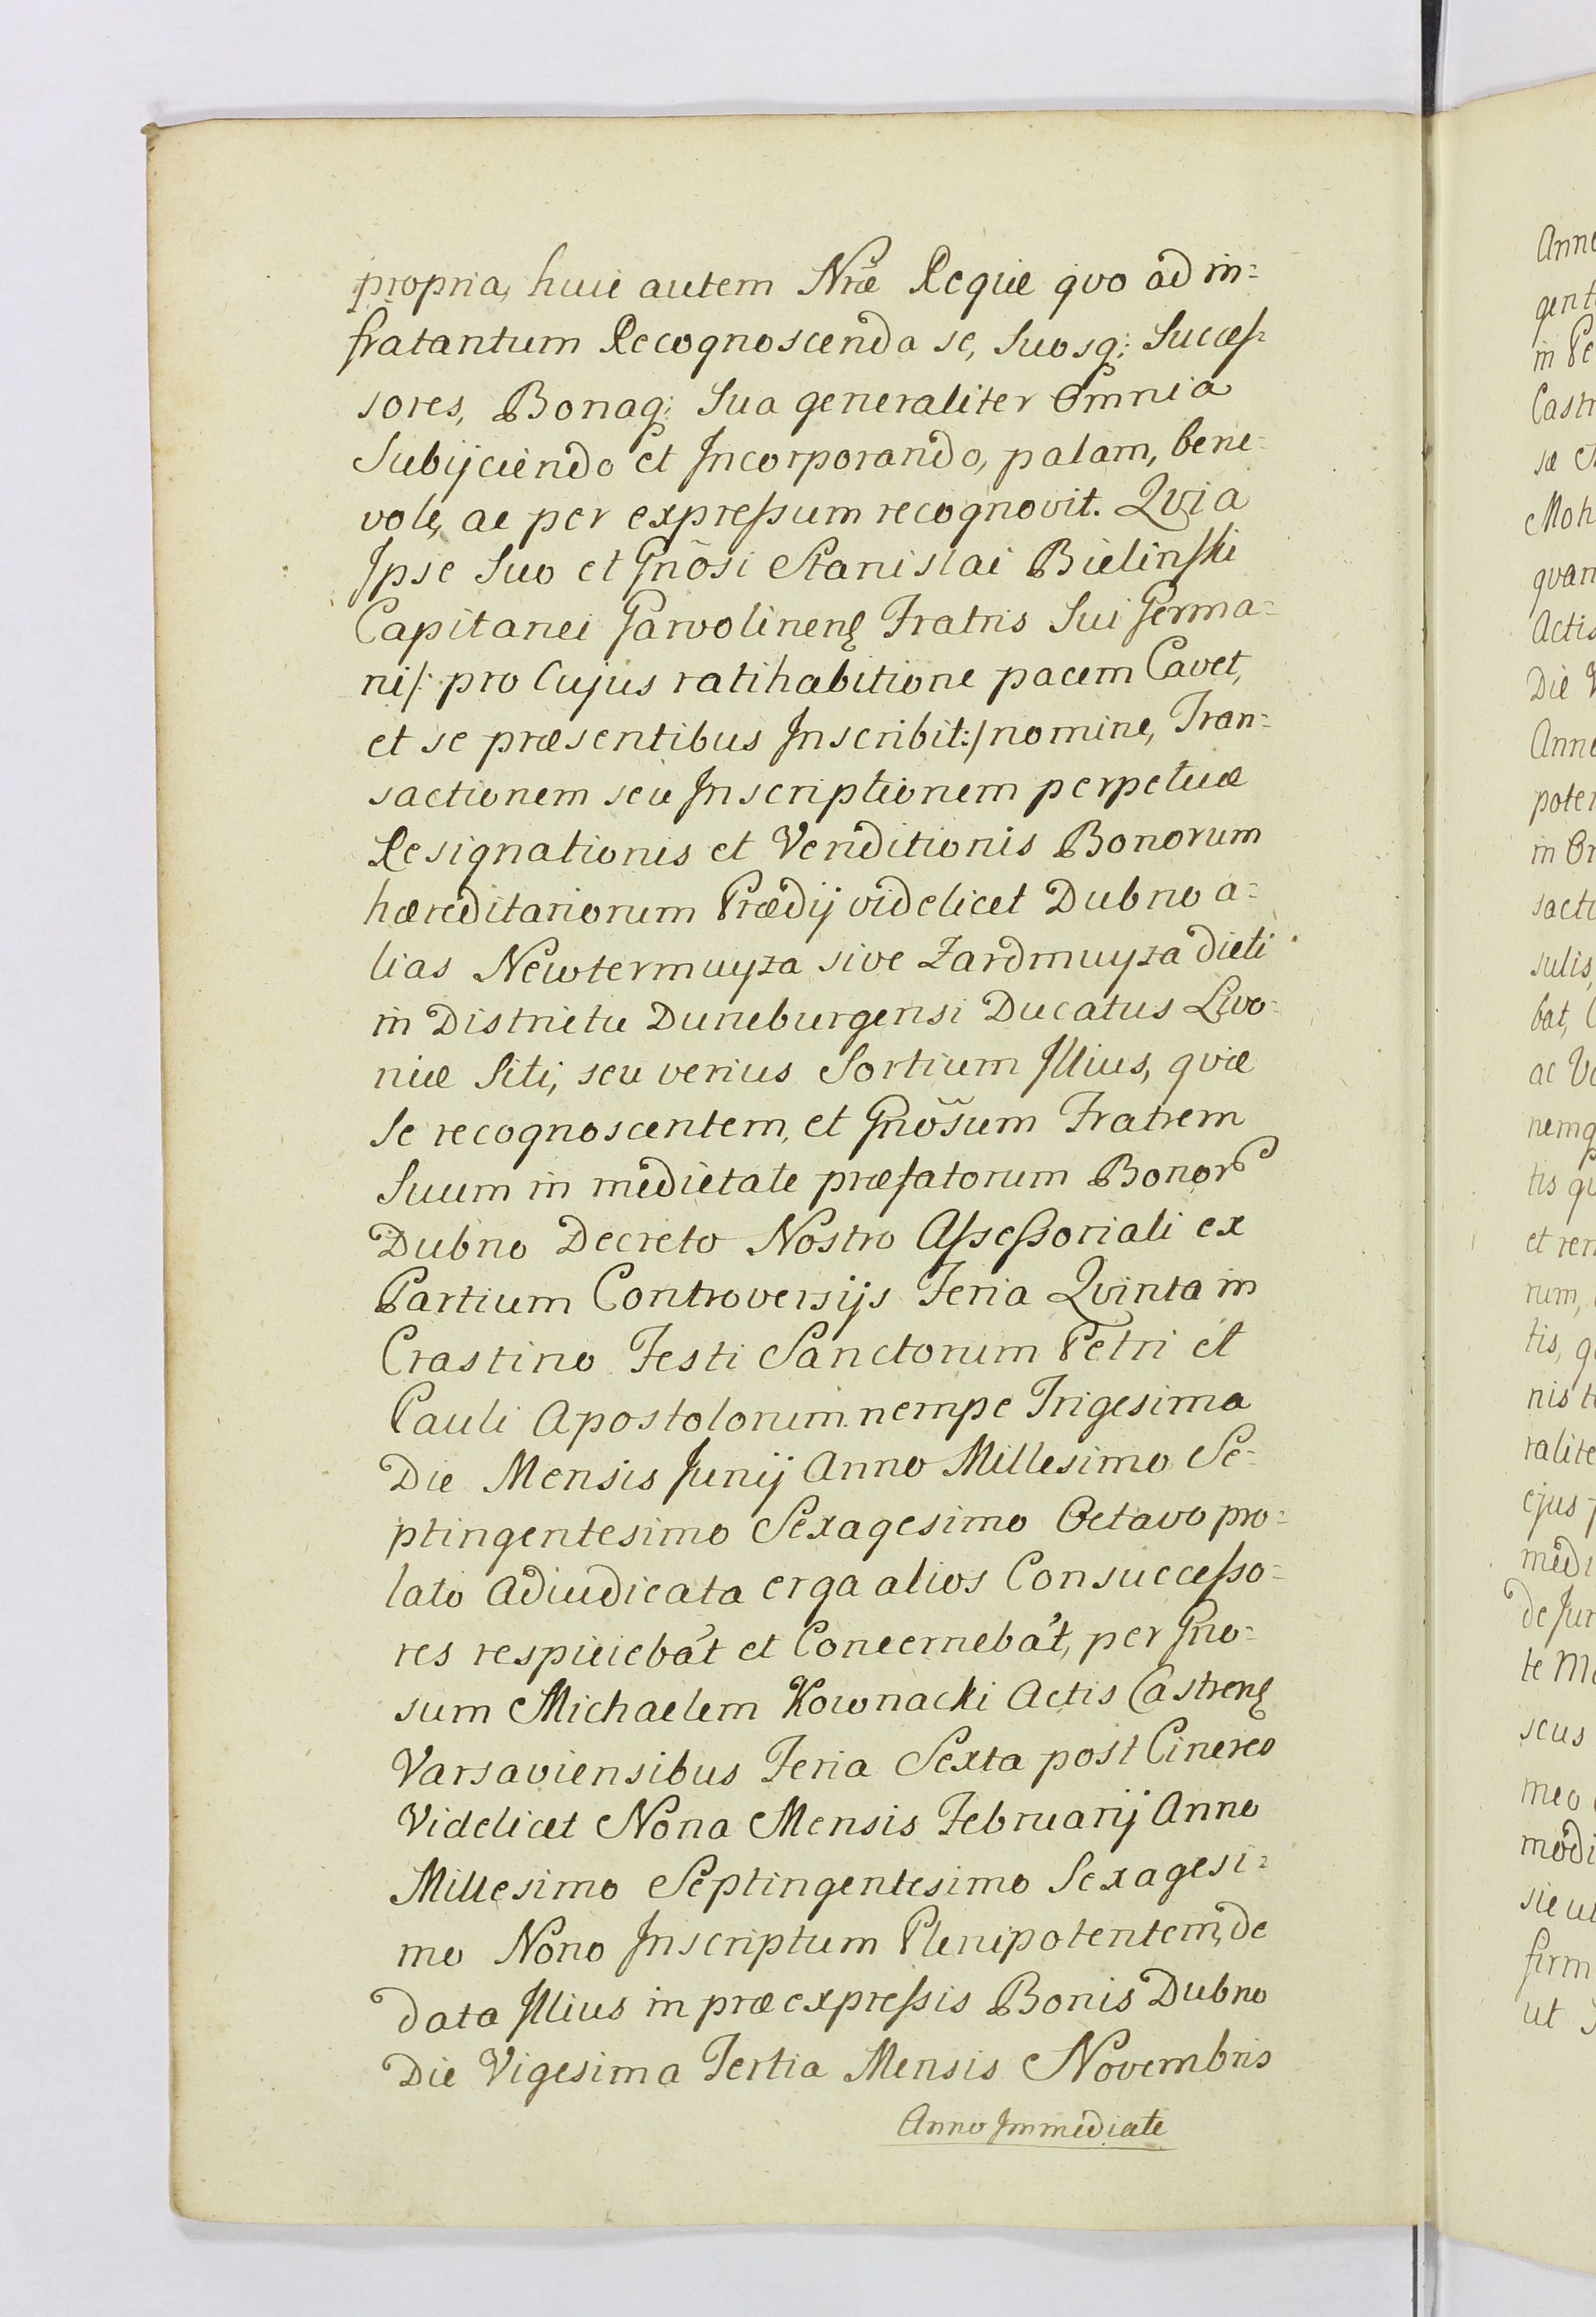 propria, huic autem Nræ Regiæ quo ad in-
fratantum Recognoscenda se, Suosq; Succes-
sores, Bonaq; Sua generaliter Omnia
Subijciendo et Incorporando, palam, bene-
vole, ac per expressum recognovit. Quia
Ipse Suo et Gnõsi Stanislai Bielinski
Capitanei Garvolinens Fratris Sui Germa-
ni/: pro Cujus ratihabitione pacem Cavet,
et se præsentibus Inscribit:/ nomine, Tran-
sactionem seu Inscriptionem perpetuæ
Resignationis et Venditionis Bonorum
hæreditariorum Prædij videlicet Dubno a-
lias Newtermuyza sive Zardmuyza dicti
in Districtu Duneburgensi Ducatus Livo-
niæ Siti, seu verius Sortium Illius, quæ
Se recognoscentem, et Gnõsum Fratrem
Suum in medietate præfatorum Bonor
Dubno Decreto Nostro Assessoriali ex
Partium Controversijs Feria Quinta in
Crastino Festi Sanctorum Petri et
Pauli Apostolorum nempe Trigesima
Die Mensis Junij Anno Millesimo Se-
ptingentesimo Sexagesimo Octavo pro-
lato Adiudicata erga alios Consuccesso-
res respiciebãt et Concernebãt, per Gno-
sum Michaelem Kownacki Actis Castrens
Varsaviensibus Feria Sexta post Cineres
Videlicet Nona Mensis Februarij Anno
Millesimo Septingentesimo Sexagesi-
mo Nono Inscriptum Plenipotentem, de
data Illius in præexpressis Bonis Dubno
Die Vigesima Tertia Mensis Novembris
Anno Immediate